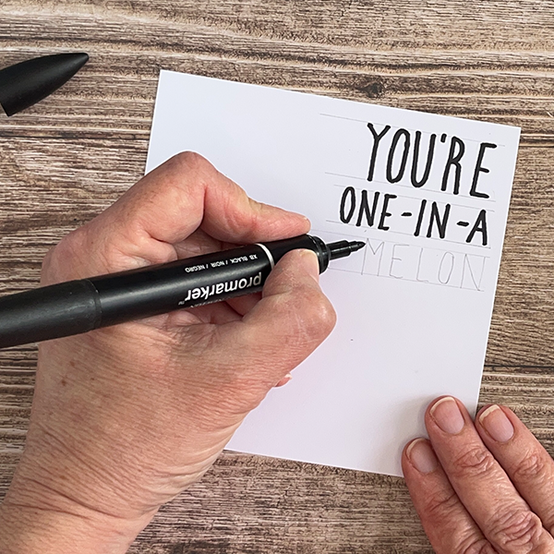 YOU'RE
ONE-IN-A
MELON
promarker™
XB BLACK / NOIR / NEGRO